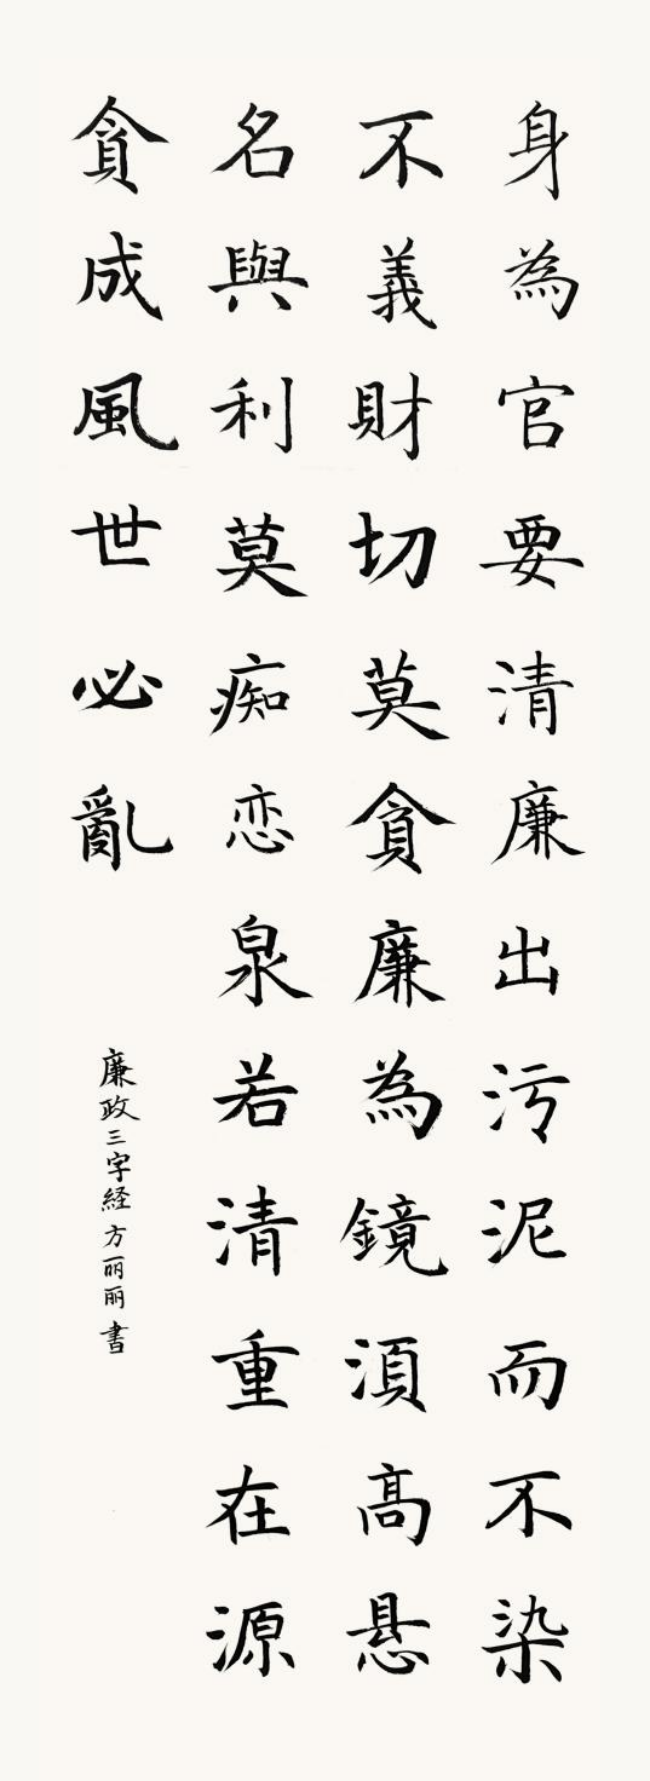 身為官要清廉出污泥而不染
不義財切莫貪廉為鏡湏高悬
名與利莫痴恋泉若清重在源
貪成風世必亂
廉政三字経方丽丽書